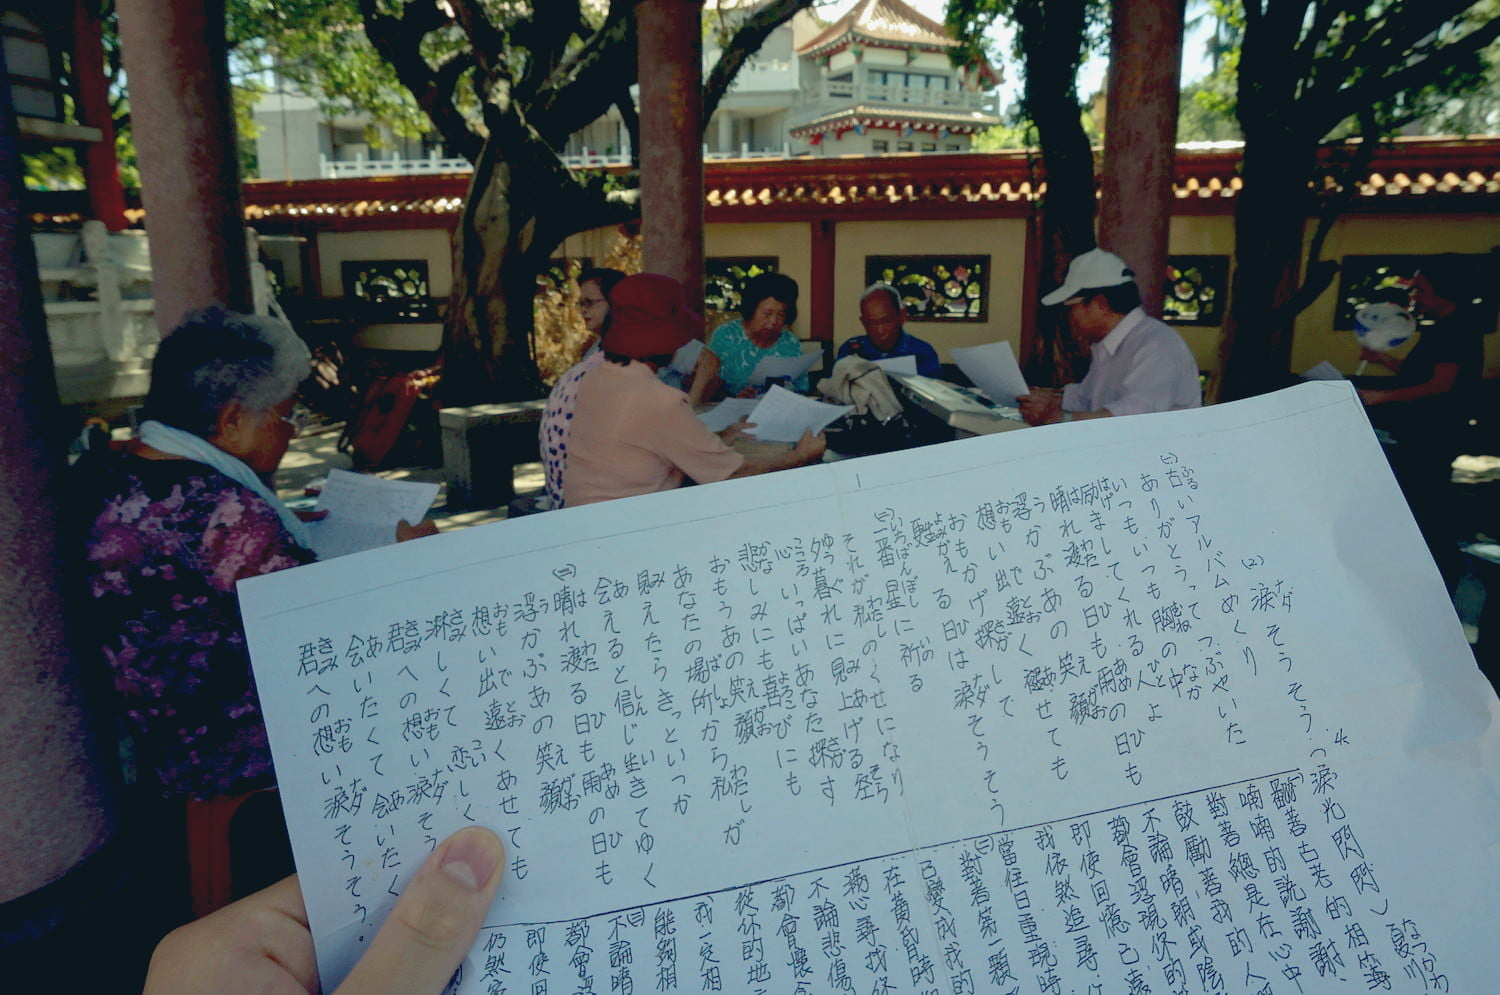 (2) 涙そうそう (涙光閃閃)
夏川
(一) 古いアルバムめくり
ありがとうってつぶやいた
いつもいつも胸の中
励ましてくれる人よ
晴れ渡る日も雨の日も
浮かぶあの笑顔
想い出遠く褪せても
おもかげ探して
甦える日は涙そうそう
(二) 一番星に祈る
それが私のくせになり
夕暮れに見上げる空
心いっぱいあなた探す
悲しみにも喜びにも
おもうあの笑顔
あなたの場所から私が
見えたらきっといつか
会えると信じ生きてゆく
(三) 晴れ渡る日も雨の日も
浮かぶあの笑顔
想い出遠くあせても
淋しくて恋しく
君への想い涙そう
会いたくて会いたく
君への想い涙そうそう.
(一) 翻著古老的相簿
喃喃的説謝謝.
對著總是在心中
鼓勵著我的人
不論晴朗或陰
都會浮現你的
即使回憶已遠
我依然追尋.
當往日重現時
(二) 對著第一顆
已變成我的
在黃昏時
滿心尋找
不論悲傷
都會懷
從你的地
我一定相
能夠相
(三) 不論晴
都會浮
即使回
仍然